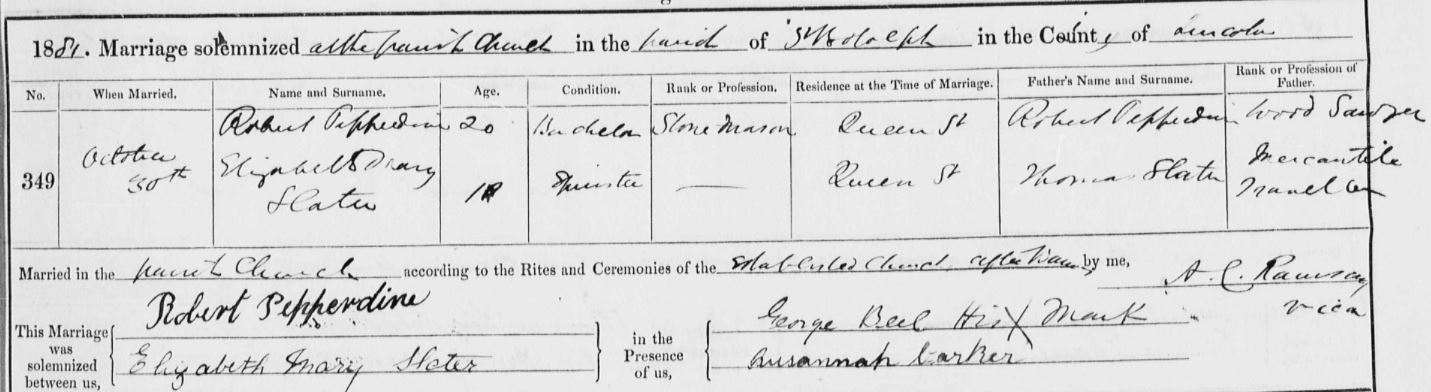 1881. Marriage solemnized at the parish Church in the parish of St Botolph in the County of Lincoln
No. When Married. Name and Surname. Age. Condition. Rank or Profession. Residence at the Time of Marriage. Father's Name and Surname. Rank or Profession of Father.
349 October 30th Robert Pepperdine 20 Bachelor Stone Mason Queen St Robert Pepperdine Wood Sawyer
Elizabeth Mary Slater Spinster — Queen St Thomas Slater Mercantile Traveller
Married in the parish Church according to the Rites and Ceremonies of the Established Church after Banns by me, A. C. Ramsay
Vicar
This Marriage was solemnized between us, Robert Pepperdine
Elizabeth Mary Slater
in the Presence of us, George Beel His X Mark
Susannah Carker